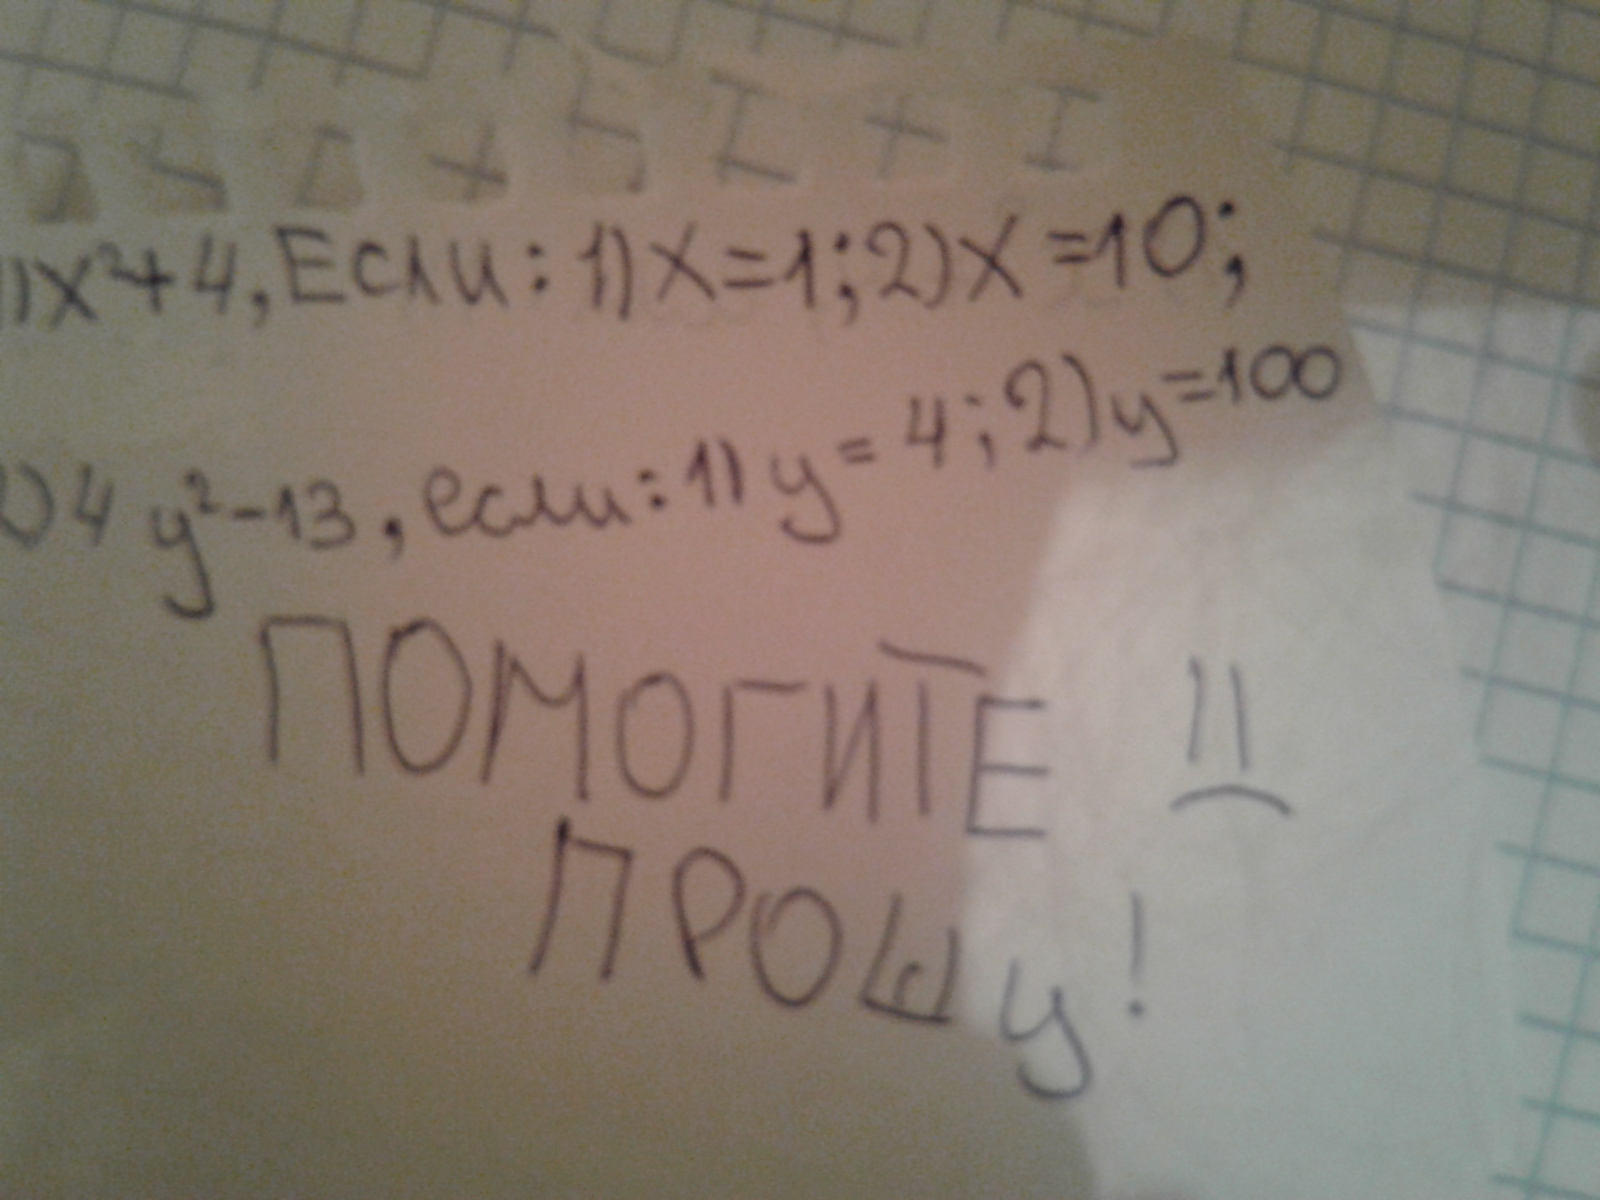 1)x²+4, Если: 1) x=1; 2) x=10;
2) 4 y²-13, если: 1) y=4; 2) y=100
ПОМОГИТЕ
ПРОШУ!